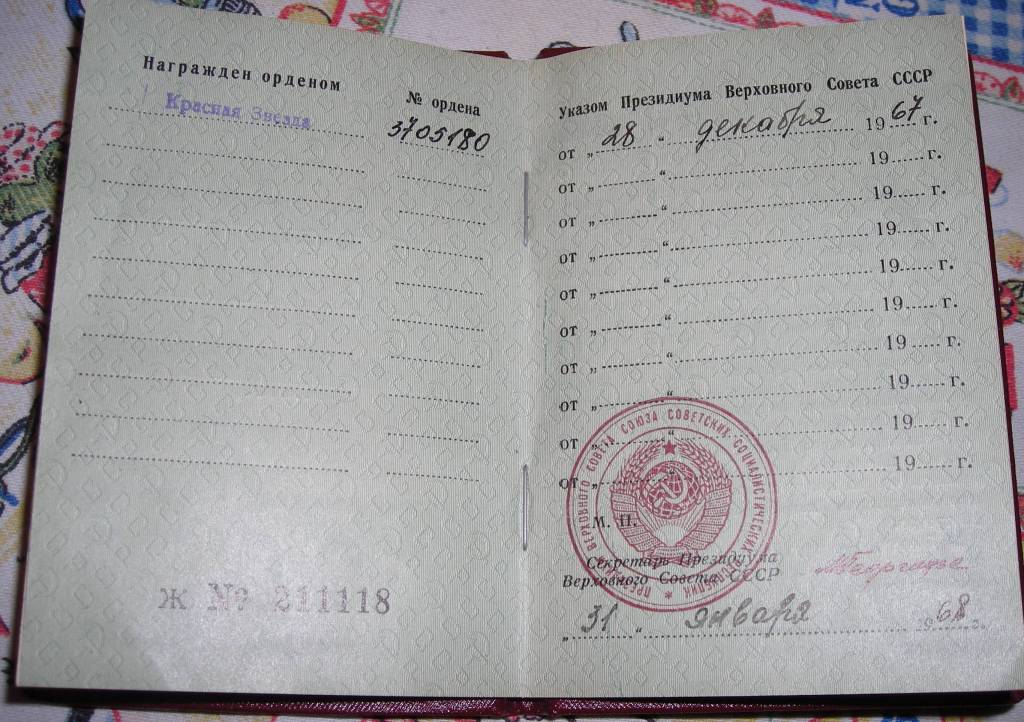 Награжден орденом
№ ордена
Красная Звезда
3705180
Ж № 211118
Указом Президиума Верховного Совета СССР
от „ 28 “ декабря 1967 г.
от „ “ 19 г.
от „ “ 19 г.
от „ “ 19 г.
от „ “ 19 г.
от „ “ 19 г.
от „ “ 19 г.
от „ “ 19 г.
от „ “ 19 г.
от „ “ 19 г.
ПРЕЗИДИУМ ВЕРХОВНОГО СОВЕТА СОЮЗА СОВЕТСКИХ СОЦИАЛИСТИЧЕСКИХ РЕСПУБЛИК
М. П.
Секретарь Президиума
Верховного Совета СССР
„ 31 “ января 1968 г.